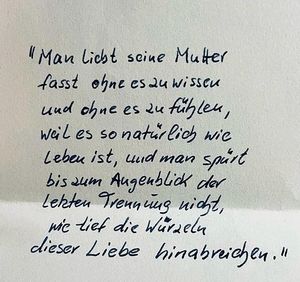 "Man liebt seine Mutter
fasst ohne es zu wissen
und ohne es zu fühlen,
weil es so natürlich wie
Leben ist, und man spürt
bis zum Augenblick der
letzten Trennung nicht,
wie tief die Würzeln
dieser Liebe hinabreichen."